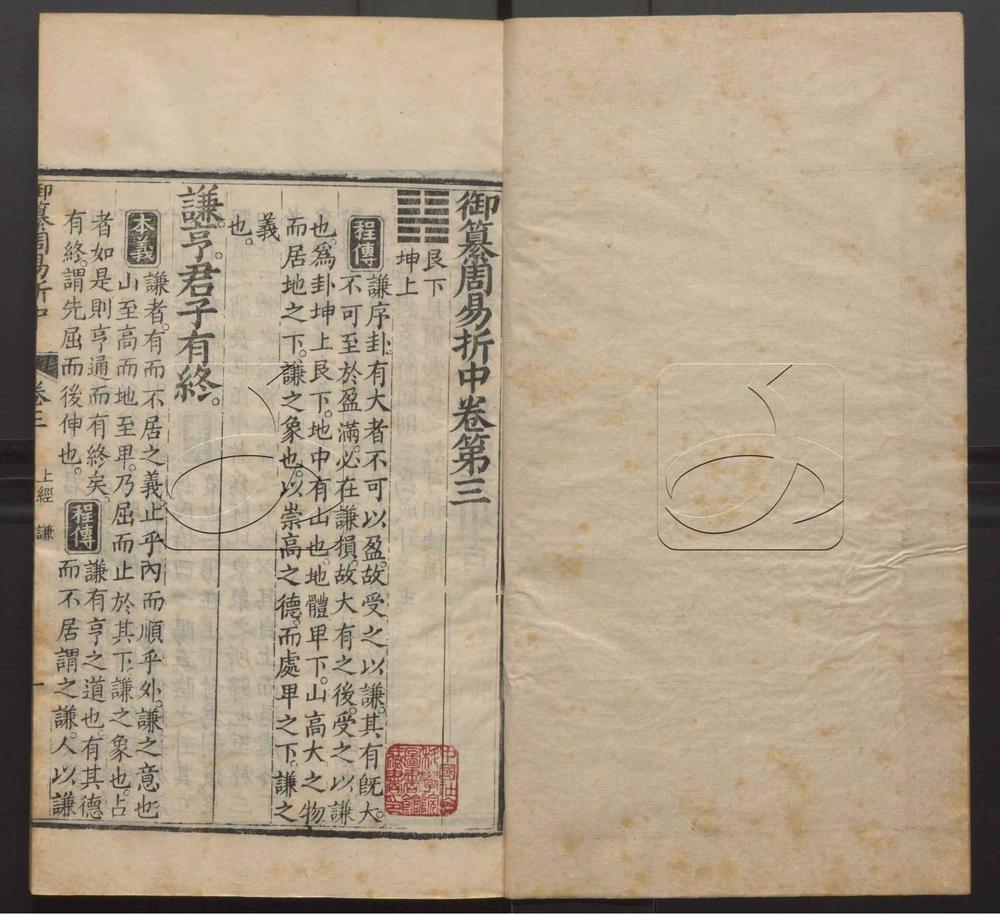 御纂周易折中卷第三
艮下
坤上
程傳
謙序卦有大者不可以盈故受之以謙其有既大
不可至於盈滿必在謙損故大有之後受之以謙
也爲卦坤上艮下地中有山也地體卑下山高大之物
而居地之下謙之象也以崇高之德而處卑之下謙之
義
也
謙亨君子有終
本義
謙者有而不居之義止乎內而順乎外謙之意也
山至高而地至卑乃屈而止於其下謙之象也占
者如是則亨通而有終矣
有終謂先屈而後伸也
程傳
謙有亨之道也有其德
而不居謂之謙人以謙
御纂周易折中
卷三
上經
謙
一
中國社會
科學院
圖書館
藏書印